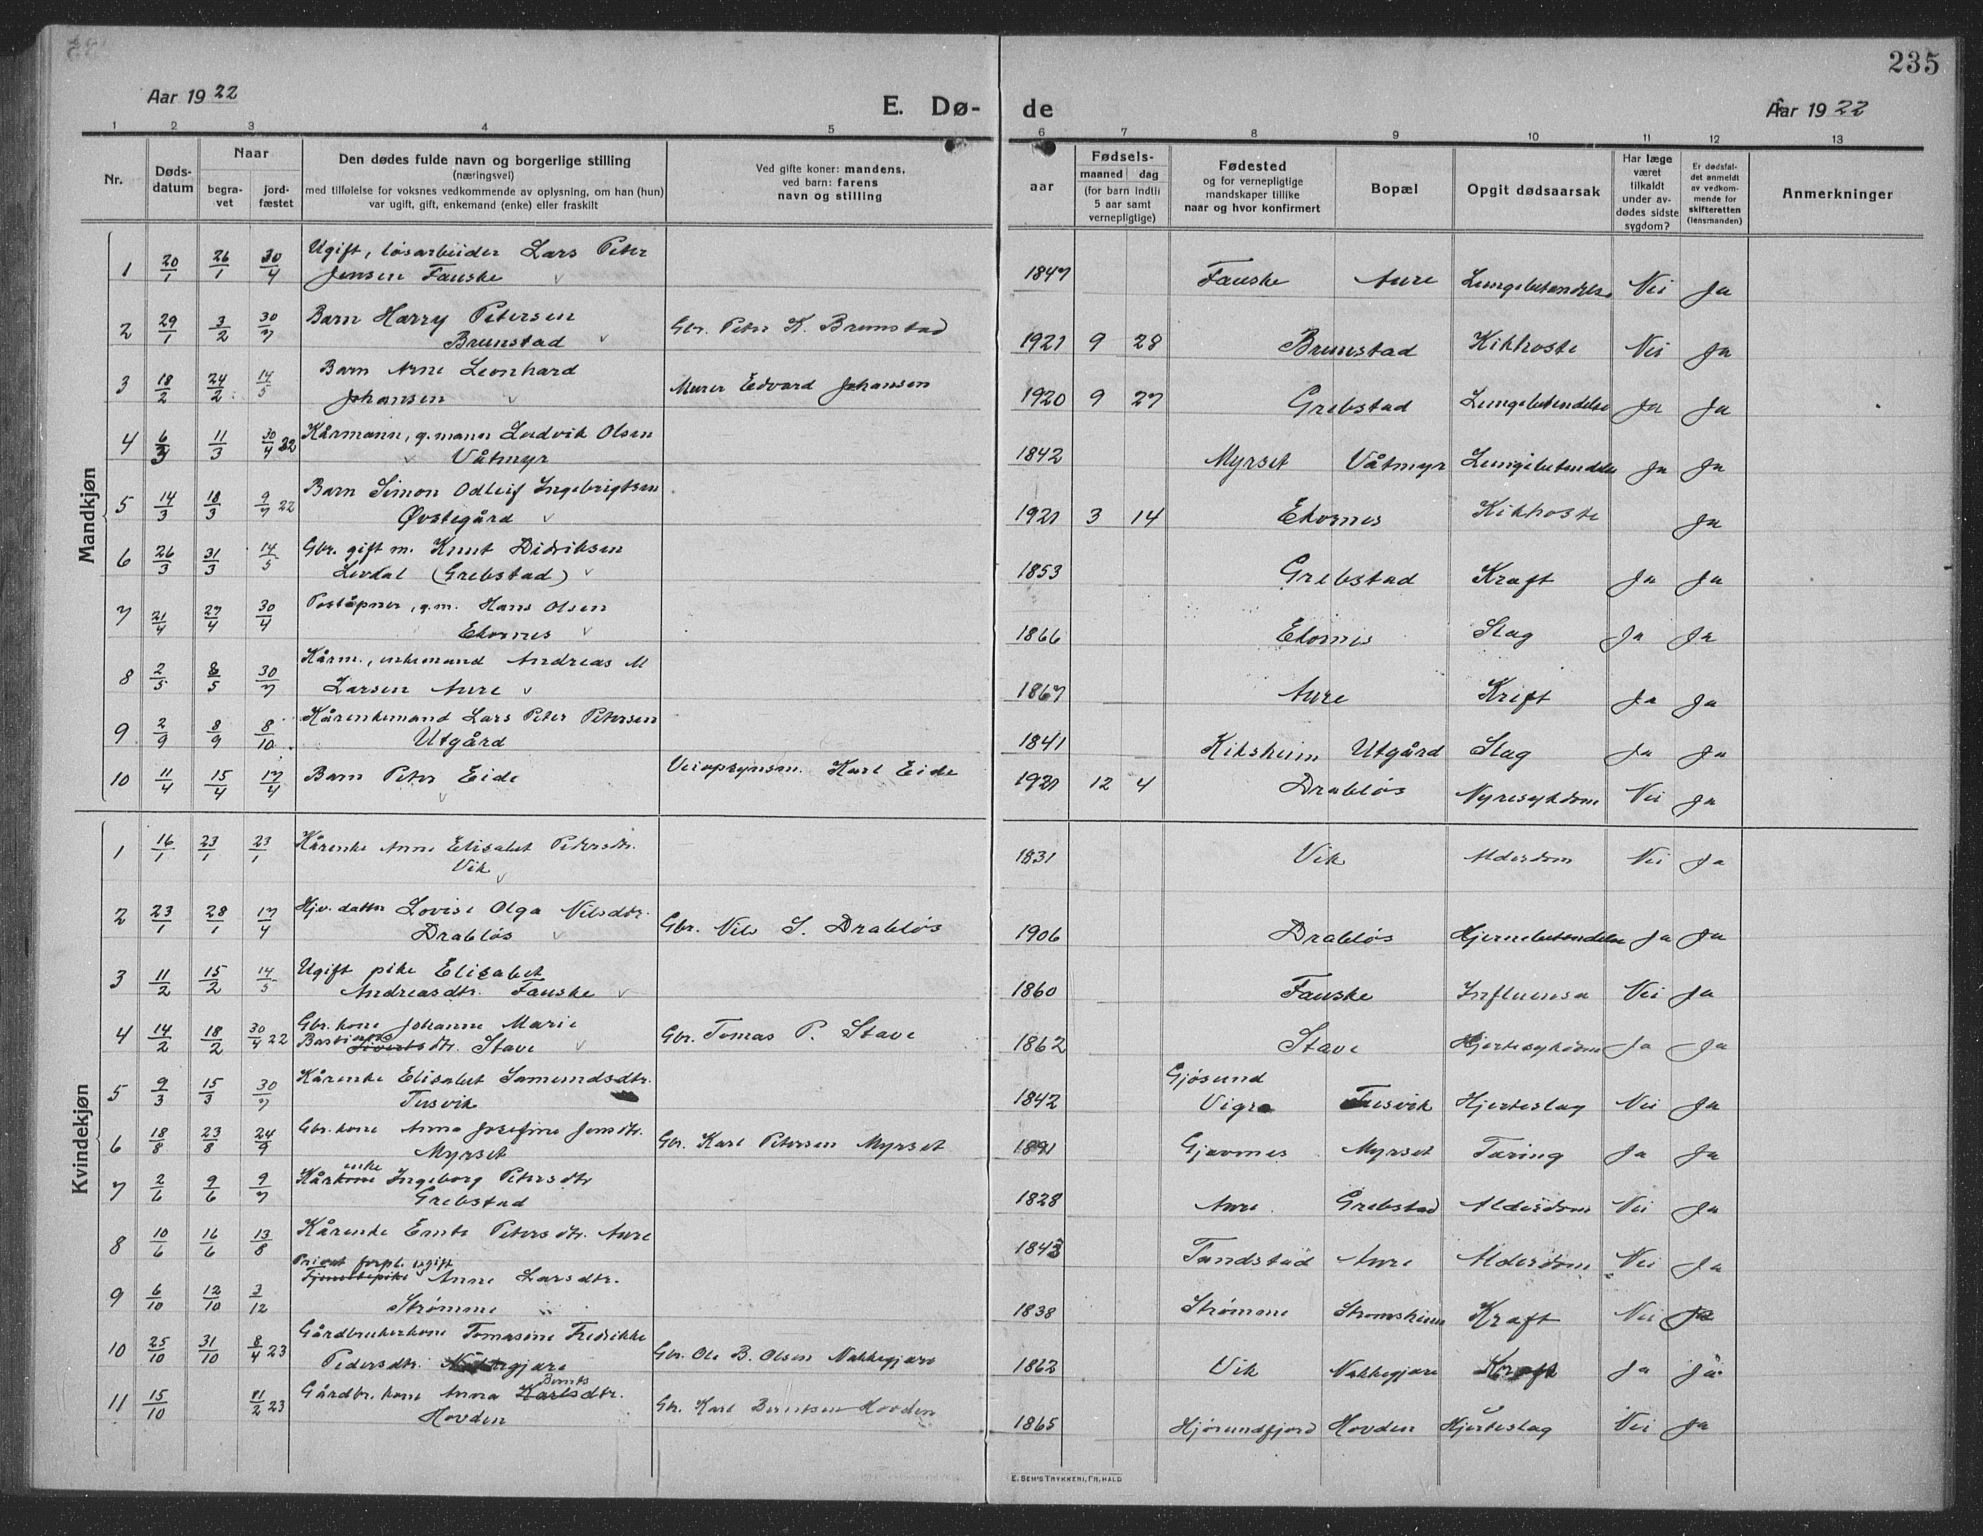 235
Aar 1922
E. Dø-
de
Aar 1922
1 2 3 4 5 6 7 8 9 10 11 12 13
Nr.
Døds-
datum
Naar
begra-
vet
jord-
fæstet
Den dødes fulde navn og borgerlige stilling
(næringsvei)
med tilføielse for voksnes vedkommende av oplysning, om han (hun)
var ugift, gift, enkemand (enke) eller fraskilt
Ved gifte koner: mandens,
ved barn: farens
navn og stilling
Fødsels-
aar
maaned dag
(for barn indtil
5 aar samt
vernepligtige)
Fødested
og for vernepligtige
mandskaper tillike
naar og hvor konfirmert
Bopæl
Opgit dødsaarsak
Har læge
været
tilkaldt
under av-
dødes sidste
sygdom?
Er dødsfal-
det anmeldt
av vedkom-
mende for
skifteretten
(lensmanden)
Anmerkninger
Mandkjøn
1 20/1 26/1 30/4 Ugift, løsarbeider Lars Peter
Jensen Fauske 1847 Fauske Aure Lungebetændelse Nei Ja
2 29/1 3/2 30/7 Barn Harry Petersen
Brunstad Gbr. Peter K. Brunstad 1921 9 28 Brunstad Kikhoste Nei Ja
3 18/2 24/2 14/5 Barn Arne Leonhard
Johansen Murer Edvard Johansen 1920 9 27 Grebstad Lungebetendelse Ja Ja
4 6/3 11/3 30/4 22 Kårmann, g.mann Ludvik Olsen
Våtmyr 1842 Myrset Våtmyr Lungebetendelse Ja Ja
5 14/3 18/3 9/7 22 Barn Simon Odleif Ingebrigtsen
Øvstegård 1921 3 14 Ekornes Kikhoste Ja
6 26/3 31/3 14/5 Gbr. gift m. Knut Didriksen
Levdal (Grebstad) 1853 Grebstad Kræft Ja Ja
7 21/4 27/4 30/4 Poståpner, g.m. Hans Olsen
Ekornes 1866 Ekornes Slag Ja Ja
8 2/5 8/5 30/7 Kårm., enkemand Andreas M
Larsen Aure 1867 Aure Kreft Ja Ja
9 2/9 8/9 8/10 Kårenkemand Lars Peter Petersen
Utgård 1841 Kiksheim Utgård Slag Ja Ja
10 11/4 15/4 17/4 Barn Peter Eide Veiopsynsm. Karl Eide 1921 12 4 Drabløs Nyresykdom Nei Ja
Kvindekjøn
1 16/1 23/1 23/1 Kårenke Anne Elisabet Petersdtr.
Vik 1831 Vik Alderdom Nei Ja
2 23/1 28/1 17/4 Hjv. datter Lovise Olga Nilsdtr.
Drabløs Gbr. Nils S. Drabløs 1906 Drabløs Hjernebetendelse Ja Ja
3 11/2 15/2 14/5 Ugift pike Elisabet
Andreasdtr. Fauske 1860 Fauske Influensa Nei Ja
4 14/2 18/2 30/4 22 Gbr. kone Johanne Marie
Bastians Sivertsdtr. Stave Gbr. Tomas P. Stave 1862 Stave Hjertesykdom Ja Ja
5 9/3 15/3 30/7 Kårenke Elisabet Samundsdtr.
Tusvik 1842 Gjøsund
Vigra Tusvik Hjerteslag Nei Ja
6 18/8 23/8 24/9 Gbr. kone Anna Josefine Jensdtr.
Myrset Gbr. Karl Petersen Myrset 1891 Gjævnes Myrset Tæring Ja Ja
7 2/6 9/6 9/7 Kårkone enke Ingeborg Petersdtr
Grebstad 1828 Aure Grebstad Alderdom Nei Ja
8 10/6 16/6 13/8 Kårenke Emte Petersdtr. Aure 1843 Tandstad Aure Alderdom Nei Ja
9 6/10 12/10 3/12 Privat forpl. ugift
Tjenestepike Anne Larsdtr.
Strømme 1838 Strømme Strømsheim Kræft Nei Ja
10 25/10 31/10 8/4 23 Gårdbrukerkone Tomasine Fredrikke
Pedersdtr. Nakkegjære Gbr. Ole B. Olsen Nakkegjære 1862 Vik Nakkegjære Kræft Ja Ja
11 15/10 11/2 23 Gårdbr. kone Anna Karlsdtr. Bernts
Hovden Gbr. Karl Berntsen Hovden 1865 Hjørundfjord Hovden Hjerteslag Nei Ja
E. SEM'S TRYKKERI, FR.HALD